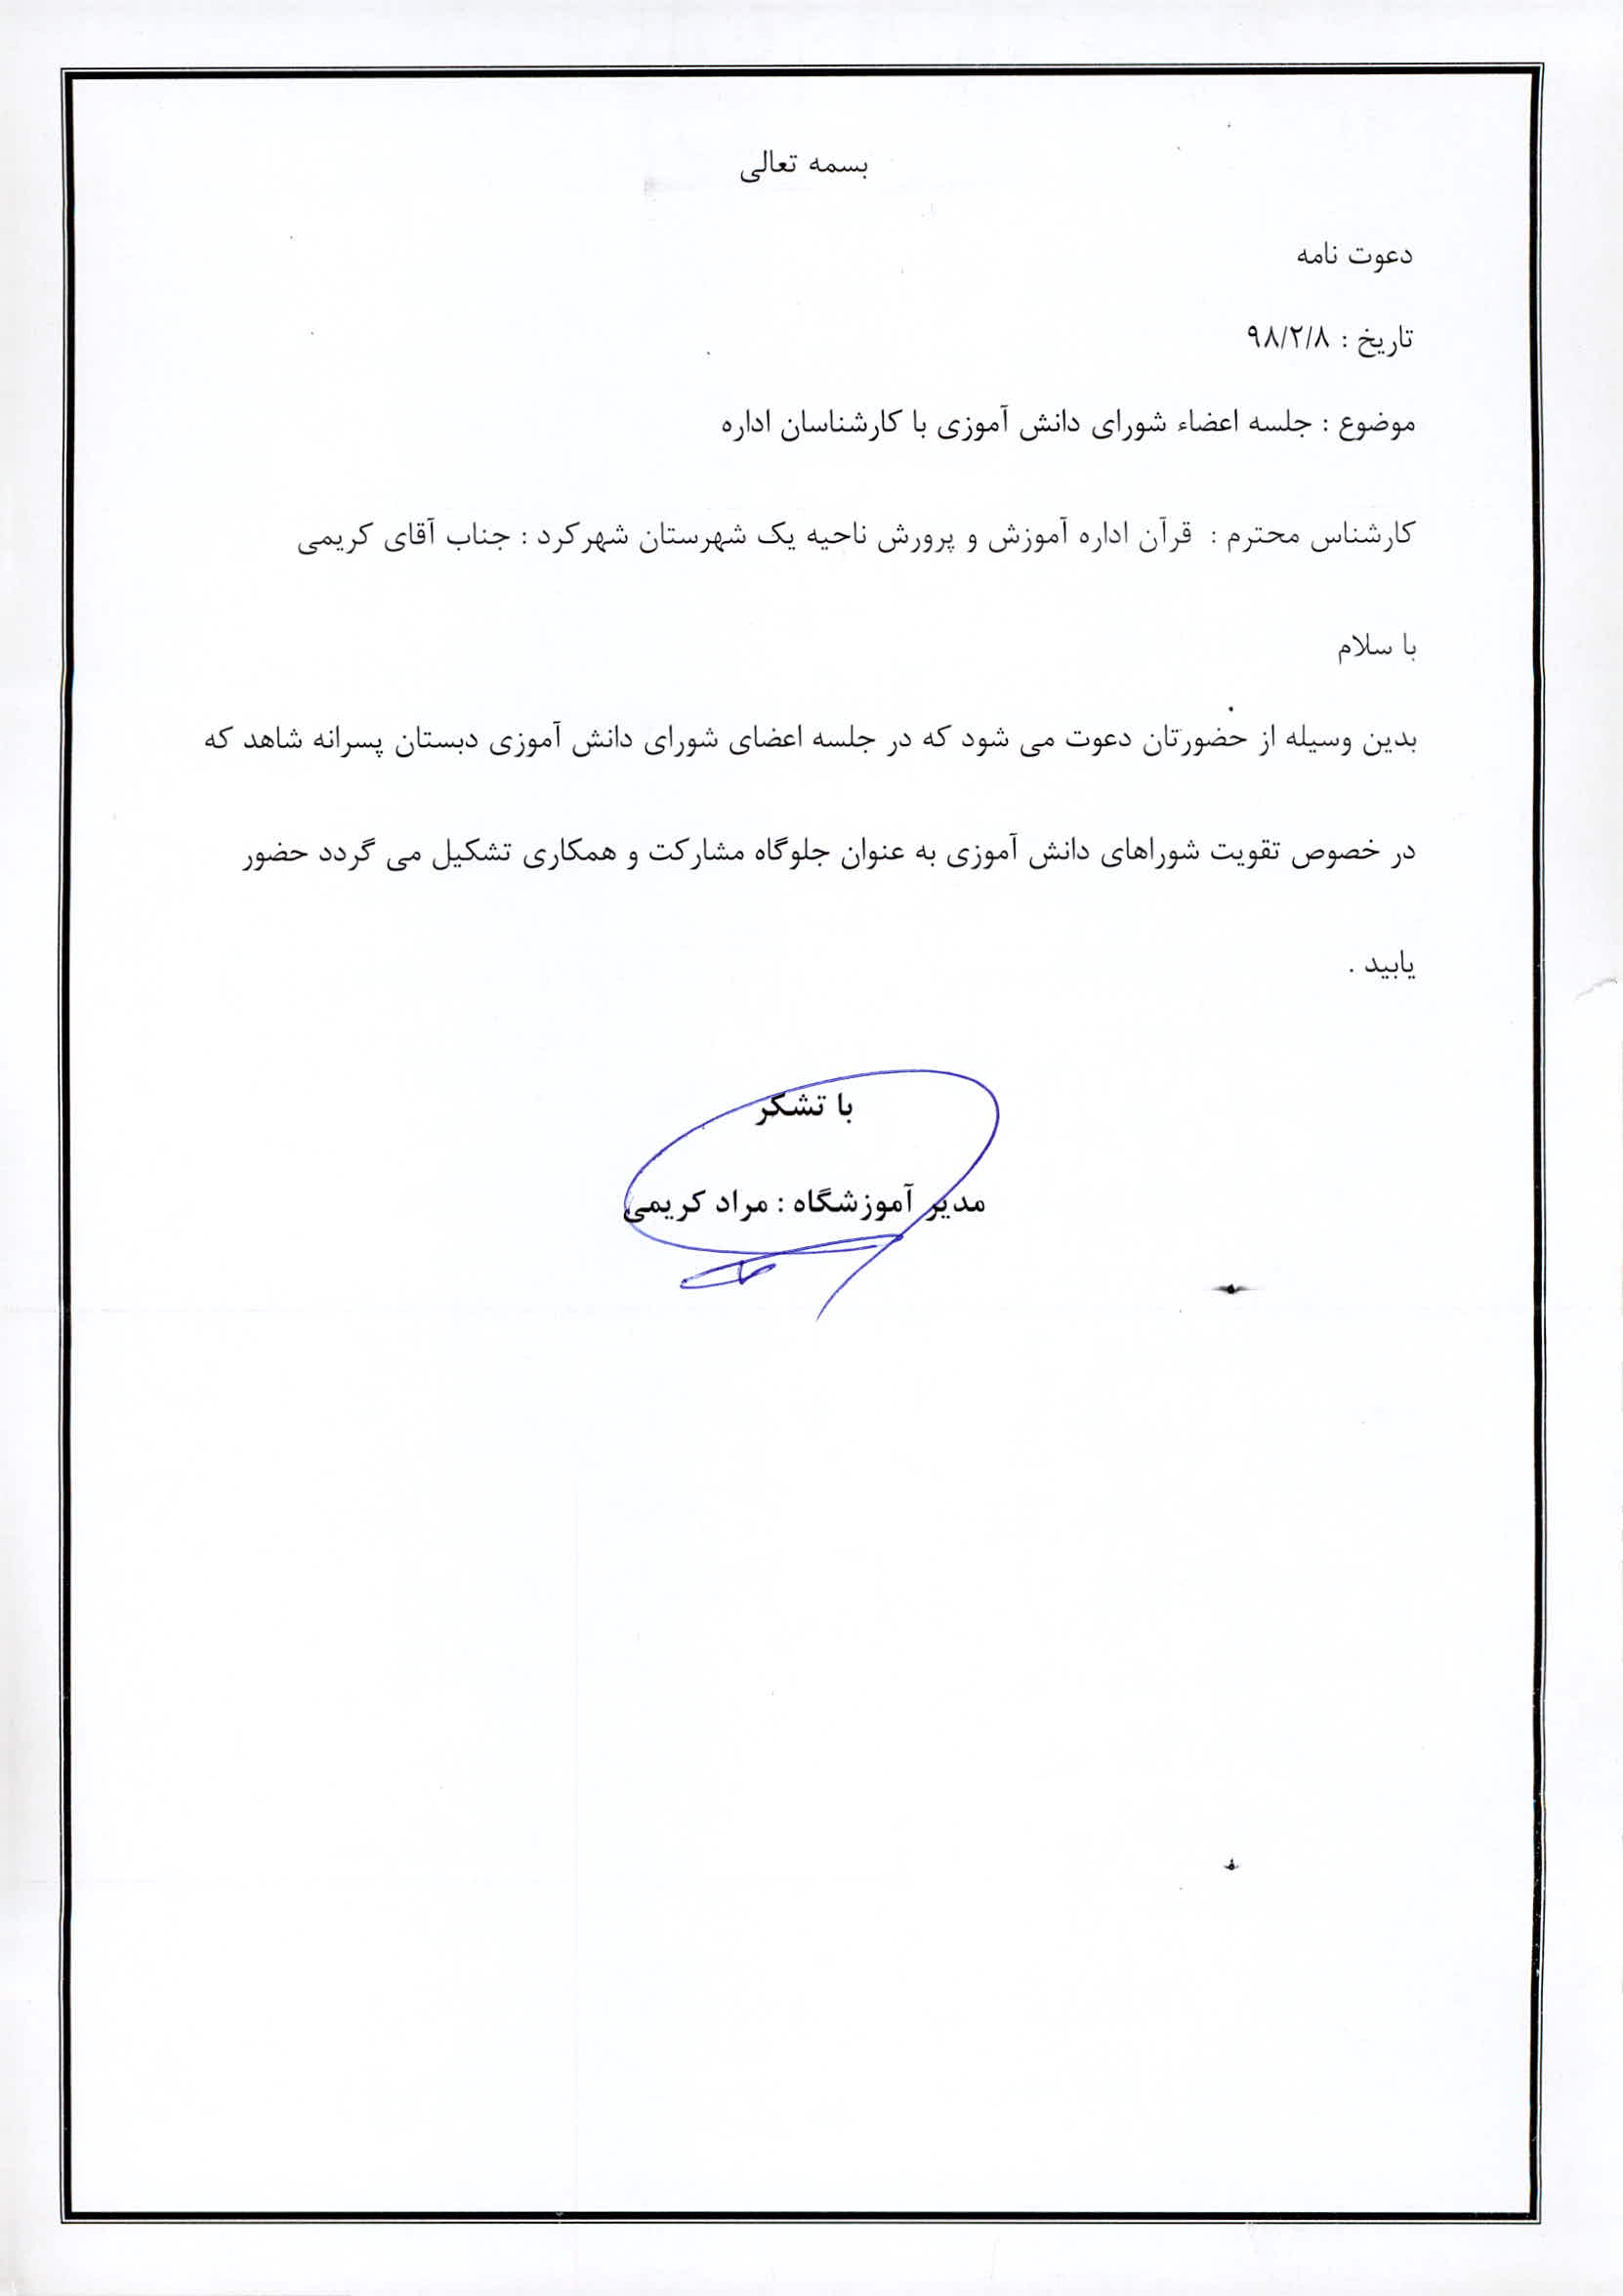 بسمه تعالی
دعوت نامه
تاریخ : ۹۸/۲/۸
موضوع : جلسه اعضاء شورای دانش آموزی با کارشناسان اداره
کارشناس محترم : قرآن اداره آموزش و پرورش ناحیه یک شهرستان شهرکرد : جناب آقای کریمی
با سلام
بدین وسیله از حضورتان دعوت می شود که در جلسه اعضای شورای دانش آموزی دبستان پسرانه شاهد که
در خصوص تقویت شوراهای دانش آموزی به عنوان جلوگاه مشارکت و همکاری تشکیل می گردد حضور
یابید .
با تشکر
مدیر آموزشگاه : مراد کریمی